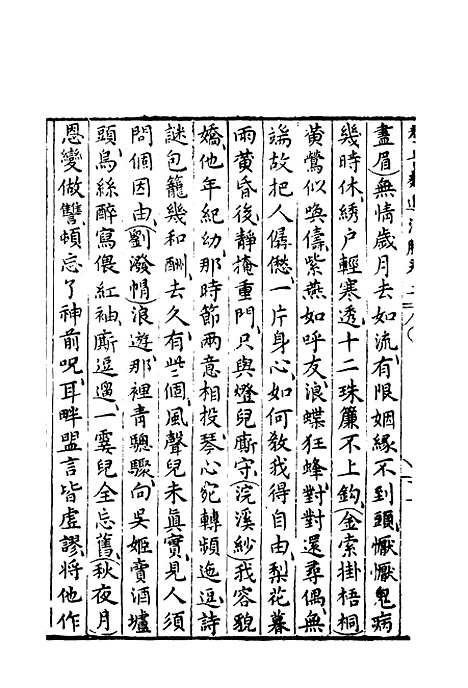 畫眉︶無情歲月去如流有限姻緣不到頭懨懨鬼病
幾時休綉户輕寒透十二珠簾不上鈎︵金索掛梧桐︶
黃鶯似喚儔紫燕如呼友浪蝶狂蜂對對還尋偶無
端故把人僝僽一片身心如何教我得自由梨花暮
雨黃昏後靜掩重門只與燈兒厮守︵浣溪紗︶我容貌
嬌他年紀幼那時節兩意相投琴心宛轉頻迤逗詩
謎包籠幾和酬去久有些個風聲兒未眞實見人須
問個因由︵劉潑帽︶浪遊那裡青驄驟向吳姬賣酒壚
頭烏絲醉寫偎紅袖厮逗遛一霎兒全忘舊︵秋夜月︶
恩變做讐頓忘了神前呪耳畔盟言皆虛謬將他作